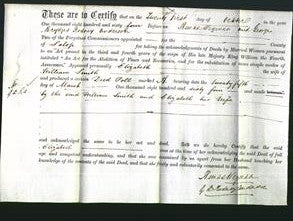 These are to Certify that on the Twenty first day of
one thousand eight hundred and sixty four Before us and George
Two of the Perpetual Commissioners appointed for
of Salop for taking the acknowledgments of Deeds by Married Women pursuant
to an Act passed in the third and fourth years of the reign of His late Majesty King William the Fourth
intituled "An Act for the Abolition of Fines and Recoveries, and for the substitution of more simple modes of
Assurance," Appeared personally Elizabeth the wife of
William Smith
and produced a certain Deed Poll marked A bearing date the Twenty fifth
day of March One thousand eight hundred and sixty four and made
by the said William Smith and Elizabeth his Wife
and acknowledged the same to be her act and deed. And we do hereby Certify that the said
Elizabeth was at the time of her acknowledging the said Deed of full
age and competent understanding, and that she was examined by us apart from her Husband touching her
knowledge of the contents of the said Deed, and that she freely and voluntarily consented to the same.